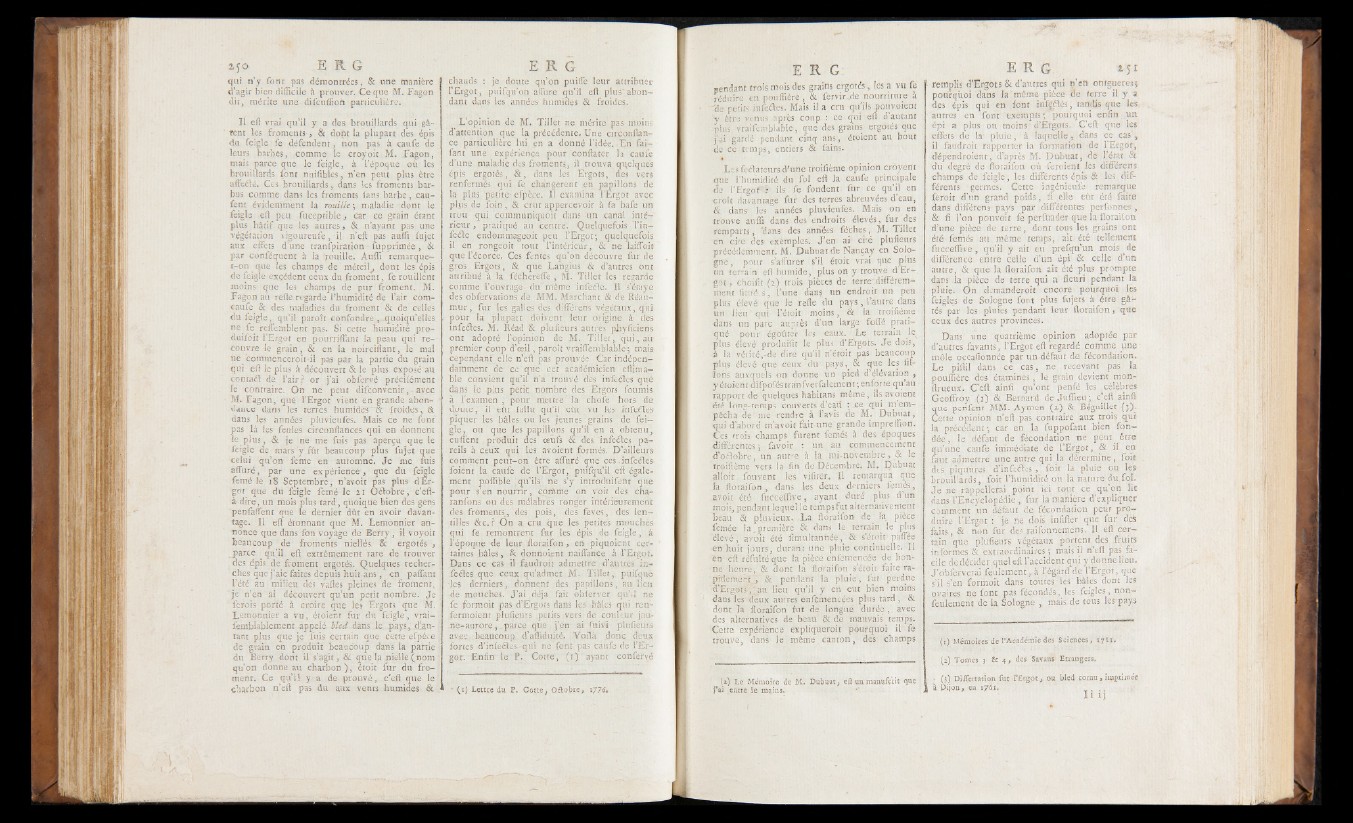 250 E R G
qui n'y sont pas démontrées, & une manière
d'agir bien difficile à prouver. Ce que M. Fagon
dit, mérite une discussion particulière.
Il est vrai qu'il y a des brouillards qui gâ-
tent les froments, & dont la plupart des épis
du seigle se défendent, non pas à cause de
leurs barbes, comme le croyoit M. Fagon,
mais parce que le seigle, à l'époque où les
brouillards sont nuisibles, n'en peut plus être
affecté. Ces brouillards, dans les froments bar-
bus comme dans les froments sans barbe, cau-
sent évidemment la rouille; maladie dont le
seigle est peu suceptible, car ce grain étant
plus hâtif que les autres, & n'ayant pas une
végétation vigoureuse, il n'est pas aussi sujet
aux effets d'une transpiration supprimée, &
par conséquent à la rouille. Aussi remarque-
t-on que les champs de méteil, dont les épis
de seigle excèdent ceux du froment, se rouillent
moins que les champs de pur froment. M.
Fagon au reste regarde l'humidité de l'air com-
cause & des maladies du froment & de celles
du seigle, qu'il paroît confondre, quoiqu'elles
ne se ressemblent pas. Si cette humidité pro-
duisoit l'Ergot en pourrissant la peau qui re-
couvre le grain, & en la noircissant, le mal
ne commenceroit-il pas par la partie du grain
qui est le plus à découvert & le plus exposé au
contact de l'air? or j'ai observé précisément
le contraire. On ne peut disconvenir, avec
M. Fagon, que l'Ergot vient en grande abon-
dance dans les terres humides & froides, &
dans les années pluvieuses. Mais ce ne sont
pas là les seules circonstances qui en donnent
le plus, & je ne me suis pas aperçu que le
seigle de mars y fût beaucoup plus sujet que
celui qu'on sème en automne. Je me suis
assuré, par une expérience, que du seigle
semé le 18 Septembre, n'avoit pas plus d'Er-
got que du seigle semé le 21 Octobre, c'est-
à dire, un mois plus tard, quoique bien des gens
pensassent que le dernier dût en avoir davan-
tage. Il est étonnant que M. Lemonnier an-
nonce que dans son voyage de Berry, il voyoit
beaucoup de froments niellés & ergotés,
parce qu'il est extrêmement rare de trouver
des épis de froment ergotés. Quelques recher-
ches que j'aie faites depuis huit ans, en passant
l'été au milieu des vastes plaines de froment,
je n'en ai découvert qu'un petit nombre. Je
serois porté à croire que les Ergots que M.
Lemonnier a vu, étoient sur du seigle, vrai-
semblablement appelé bled dans le pays, d'au-
tant plus que je suis certain que cette espèce
de grain en produit beaucoup dans la partie
du Berry dont il s'agit, & que la nielle (nom
qu'on donne au charbon), étoit sur du fro-
ment. Ce qu'il y a de prouvé, c'est que le
charbon n'est pas dû aux vents humides &
E R G
chauds : je doute qu'on puisse leur attribuer
l'Ergot, puisqu'on assure qu'il est plus abon-
dant dans les années humides & froides.
L'opinion de M. Tillet ne mérite pas moins
d'attention que la précédente. Une circonstan-
ce particulière lui en a donné l'idée. En fai-
sant une expérience pour constater la cause
d'une maladie des froments, il trouva quelques
épis ergotés, &, dans les Ergots, des vers
renfermés qui se changerent en papillons de
la plus petite espèce. Il examina l'Ergot avec
plus de soin, & crut appercevoir à sa base un
trou qui communiquoit dans un canal inté-
rieur, pratiqué au centre. Quelquefois l'in-
secte endommageoit peu l'Ergot; quelquefois
il en rongeoit tout l'intérieur, & ne laissoit
que l'écorce. Ces fentes qu'on découvre sur de
gros Ergots, & que Langius & d'autres ont
attribué à la sécheresse, M. Tillet les regarde
comme l'ouvrage du même insecte. Il s'étaye
des observations de MM. Marchant & de Réau-
mur, sur les galles des différens végétaux, qui
pour la plupart doivent leur origine à des
insectes. M. Réad & plusieurs autres physiciens
ont adopté l'opinion de M. Tillet, qui, au
premier coup d'œil, paroit vraissemblable; mais
cependant elle n'est pas prouvée. Car indépen-
damment de ce que cet académicien estima-
ble convient qu'il n'a trouvé des insectes que
dans le plus petit nombre des Ergots soumis
à l'examen, pour mettre la chose hors de
doute, il eut fallu qu'il eût vu les insectes
piquer les bâles ou les jeunes grains de sei-
gle, ou que les papillons qu'il en a obtenu,
eussent produit des œufs & des insectes pa-
reils à ceux qui les avoient formés. D'ailleurs
comment peut-on être assuré que ces insectes
soient la cause de l'Ergot, puisqu'il est égale-
ment possible qu'ils ne s'y introduisent que
pour s'en nourrir, comme on voit des cha-
ransons ou des mélabres ronger intérieurement
des froments, des pois, des fèves, des len-
tilles &c.? On a cru que les petites mouches
qui se remontrent sur les épis de seigle, à
l'époque de leur floraison, en piquoient cer-
taines bâles, & donnoient naissance à l'Ergot.
Dans ce cas il faudroit admettre d'autres in-
sectes que ceux qu'admet M. Tillet, puisque
les derniers, donnent des papillons, au lieu
de mouches. J'ai déja fait observer qu'il ne
se formoit pas d'Ergots dans les bâles qui ren-
fermoient plusieurs petits vers de couleur jau-
ne-aurore, parce que j'en ai suivi plusieurs
avec beaucoup d'assiduité. Voilà donc deux
sortes d'insectes qui ne sont pas cause de l'Er-
got. Enfin le P. Cotte, (1) ayant conservé
(1) Lettre du P. Cotte, Octobre, 1776.
E R G
pendant trois mois des grains ergotés, les a vu se
réduire en poussière, & servir de nourriture à
de petits insectes. Mais il a cru qu'ils pouvoient
y être venus après coup : ce qui est d'autant
plus vraisemblable, que des grains ergotés que
j'ai gardé pendant cinq ans, étoient au bout
de ce temps, entiers & sains.
Les sectateurs d'une troisième opinion croyent
que l'humidité du sol est la cause principale
de l'Ergot: ils se fondent sur ce qu'il en
croît davantage sur des terres abreuvées d'eau,
& dans les années pluvieuses. Mais on en
trouve aussi dans des endroits élevés, sur des
remparts, dans des années sèches, M. Tillet
en cite des exemples. J'en ai cité plusieurs
précédemment. M. Dubuat de Nançay en Solo-
gne, pour s'assurer s'il étoit vrai que plus
un terrain est humide, plus on y trouve d'Er-
got, choisit (2) trois pièces de terre différem-
ment située, l'une dans un endroit un peu
plus élevé que le reste du pays, l'autre dans
un lieu qui l'étoit moins, & la troisième
dans un parc auprès d'un large fossé prati-
qué pour égoûter les eaux. Le terrain le
plus élevé produisit le plus d'Ergots. Je dois,
à la vérité, de dire qu'il n'étoit pas beaucoup
plus élevé que ceux du pays, & que les sil-
lons auxquels on donne un pied d'élévation,
y étoient disposés transversalement; ensorte qu'au
rapport de quelques habitans même, ils avoient
été long-temps couverts d'eau : ce qui m'em-
pêcha de me rendre à l'avis de M. Dubuat,
qui d'abord m'avoit fait une grande impression.
Ces trois champs furent semés à des époques
différentes; savoir : un au commencement
d'octobre, un autre à la mi-novembre, & le
troisième vers la fin de Décembre. M. Dubuat
alloit souvent les visiter. Il remarqua que
la floraison, dans les deux derniers semés,
avoit été successive, ayant duré plus d'un
mois, pendant lequel le temps fut alternativement
beau & pluvieux. La floraison de la pièce
semée la première & dans le terrain le plus
élevé, avoit été simultannée, & s'étoit passée
en huit jours, durant une pluie continuelle. Il
en est résulté que la pièce ensemencée de bon-
ne heure, & dont la floraison s'étoit faite ra-
pidement, & pendant la pluie, fut perdue
d'Ergots, au lieu qu'il y en eut bien moins
dans les deux autres ensemencées plus tard, &
dont la floraison fut de longue durée, avec
des alternatives de beau & de mauvais temps.
Cette expérience expliqueroit pourquoi il se
trouve, dans le même canton, des champs
(2) Le Mémoire de M. Dubuat, est un manuscrit que
j'ai entre le mains.
E R G 251
remplis d'Ergots & d'autres qui n'en ont guères;
pourquoi dans la même pièce de terre il y a
des épis qui en sont infectés, tandis que les
autres en sont exempts; pourquoi enfin un
épi a plus ou moins d'Ergots. C'est que les
effets de la pluie, à laquelle, dans ce cas,
il faudroit rapporter la formation de l'Ergot,
dépendroient, d'après M. Dubuat, de l'état &
du degré de floraison où seroient les différens
champs de seigle, les différents épis & les dif-
férents germes. Cette ingénieuse remarque
seroit d'un grand poids, si elle eût été faite
dans différens pays par différentes personnes,
& si l'on pouvoit se persuader que la floraison
d'une pièce de terre, dont tous les grains ont
été semés au même temps, ait été tellement
successive, qu'il y ait eu presqu'un mois de
différence entre celle d'un épi & celle d'un
autre, & que la floraison ait été plus prompte
dans la pièce de terre qui a fleuri pendant la
pluie. On demanderoit encore pourquoi les
seigles de Sologne sont plus sujets à être gâ-
tés par les pluies pendant leur floraison, que
ceux des autres provinces.
Dans une quatrième opinion adoptée par
d'autres savants, l'Ergot est regardé comme une
môle occasionnée par un défaut de fécondation.
Le pistil dans ce cas, ne recevant pas la
poussière des étamines, le grain devient mon-
strueux. C'est ainsi qu'ont pensé les célèbres
Geoffroy (1) & Bernard de Jussieu; c'est ainsi
que pensent MM. Aymen (2) & Béguillet (3).
Cette opinion n'est pas contraire aux trois qui
la précèdent; car en la supposant bien fon-
dée, le défaut de fécondation ne peut être
qu'une cause immédiate de l'Ergot, & il en
faut admettre une autre qui la détermine, soit
des piqures d'insectes, soit la pluie ou les
brouillards, soit l'humidité ou la nature du sol.
Je ne rappellerai point ici tout ce qu'on lit
dans l'Encyclopédie, sur la manière d'expliquer
comment un défaut de fécondation peut pro-
duire l'Ergot : je ne dois insister que sur des
faits, & non sur des raisonnemens. Il est cer-
tain que plusieurs végétaux portent des fruits
informes & extraordinaires; mais il n'est pas fa-
cile de décider quel est l'accident qui y donne lieu.
J'observerai seulement, à l'égard de l'Ergot, que
s'il s'en formoit dans toutes les bâles dont les
ovaires ne sont pas fécondés, les seigles, non-
seulement de la Sologne, mais de tous les pays
(1) Mémoires de l'Académie des Sciences, 1711.
(2) Tomes 3 & 4, des Savans Etrangers.
(3) Dissertation sur l'Ergot, ou bled cornu, imprimée
à Dijon, en 1761.
I i ij